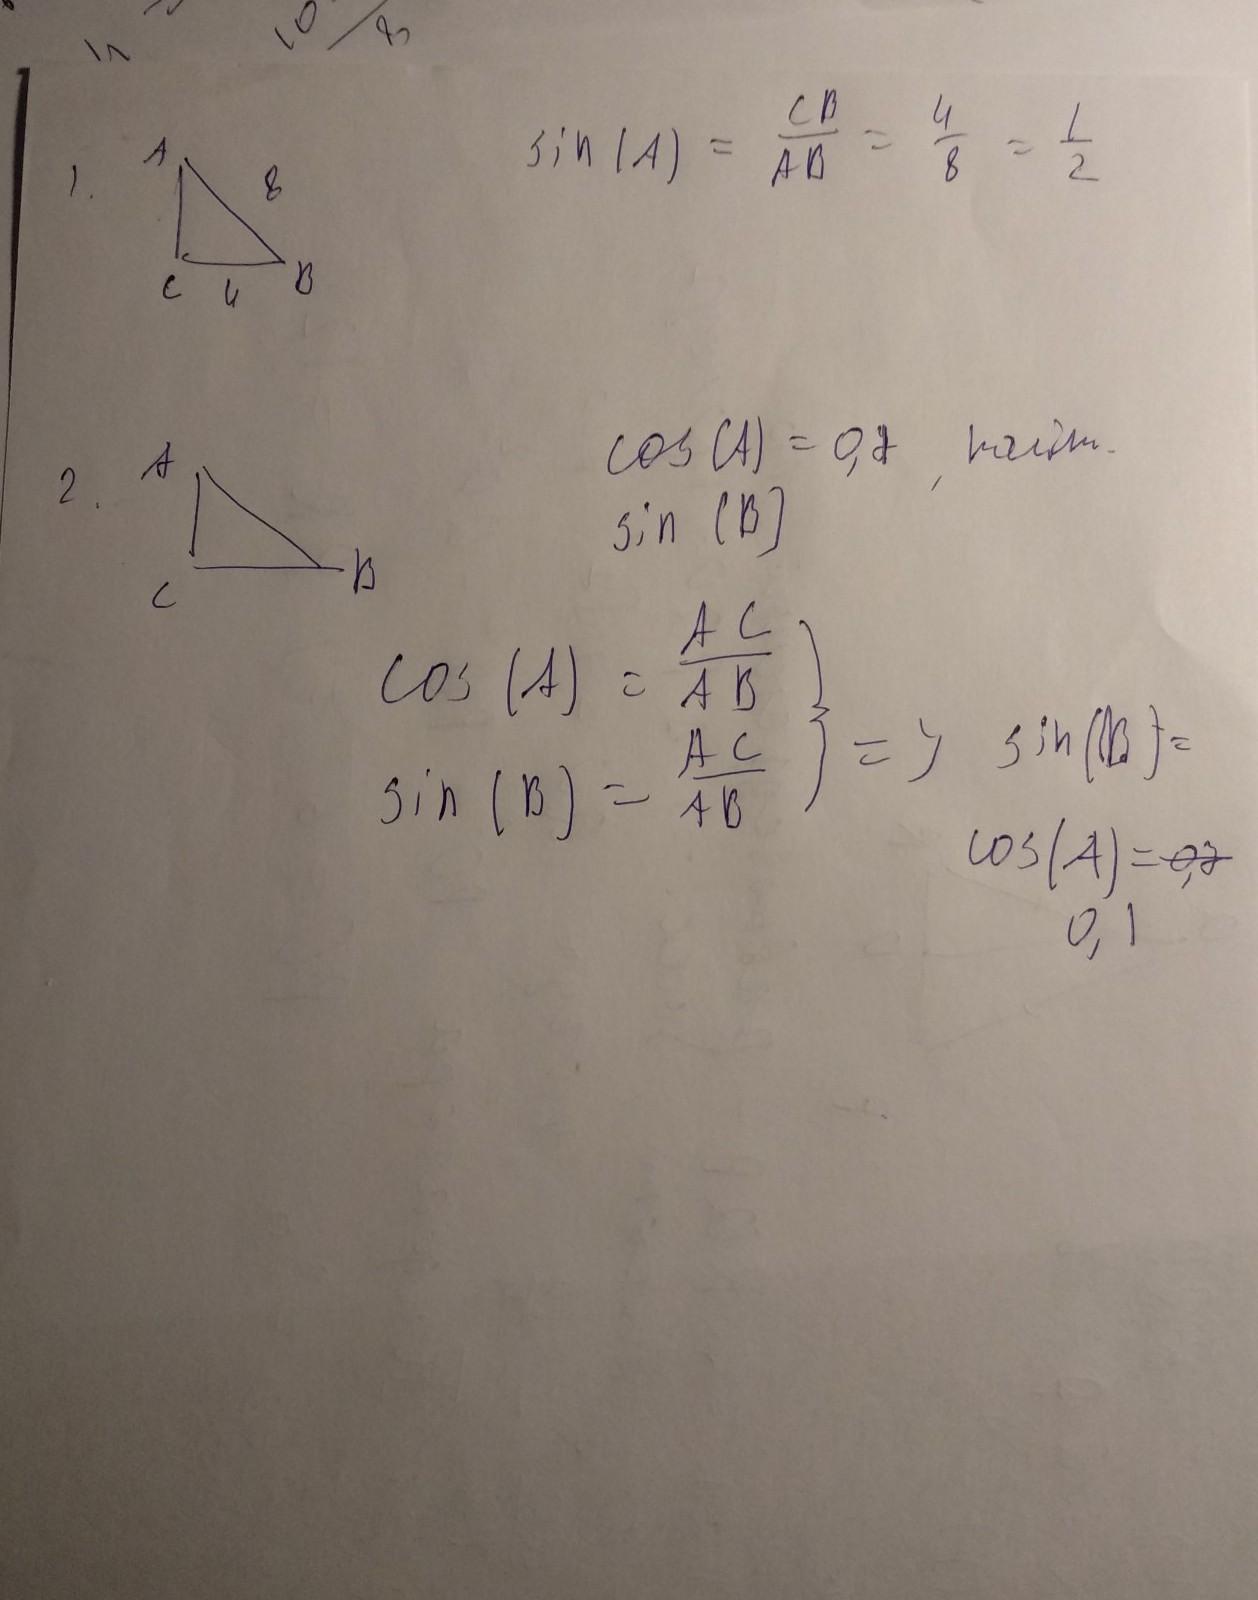 10/8
1.
A
8
C 4 B
sin(A) = CB/AB = 4/8 = 1/2
2.
A
C B
cos(A) = 0,
sin(B)
cos(A) = AC/AB
sin(B) = AC/AB } => sin(B) =
cos(A) =
0,1